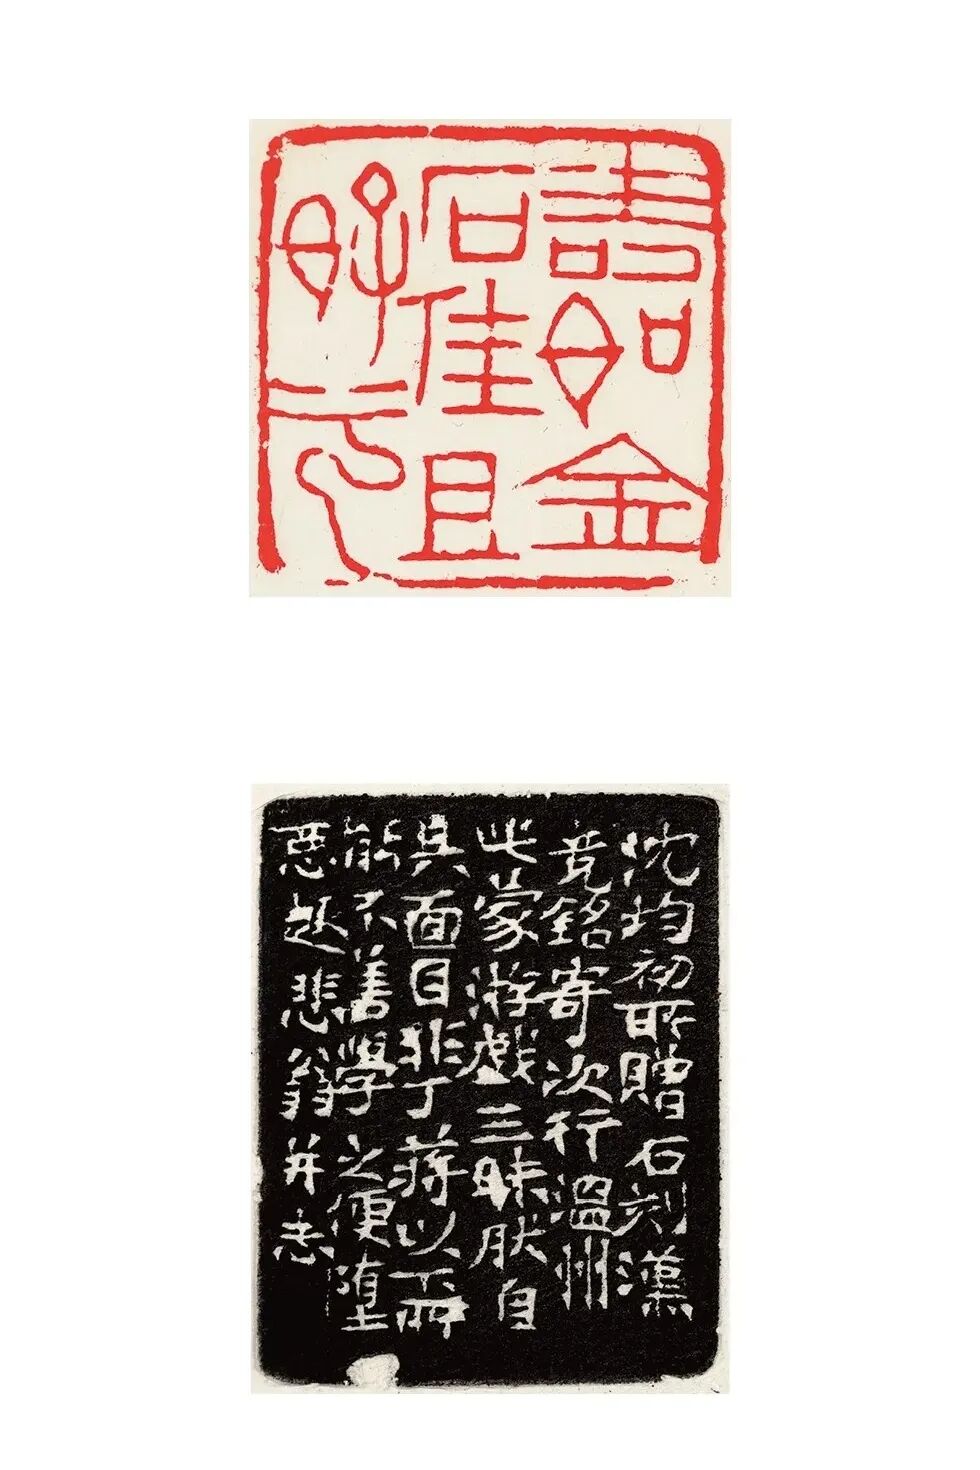 壽如金
石佳且
好兮
沈均初所贈石刻漢
竟銘寄次行溫州
此蒙游戲三昧肰自
具面目非丁蔣以下所
能不善學之便墮
惡趣悲翁并志